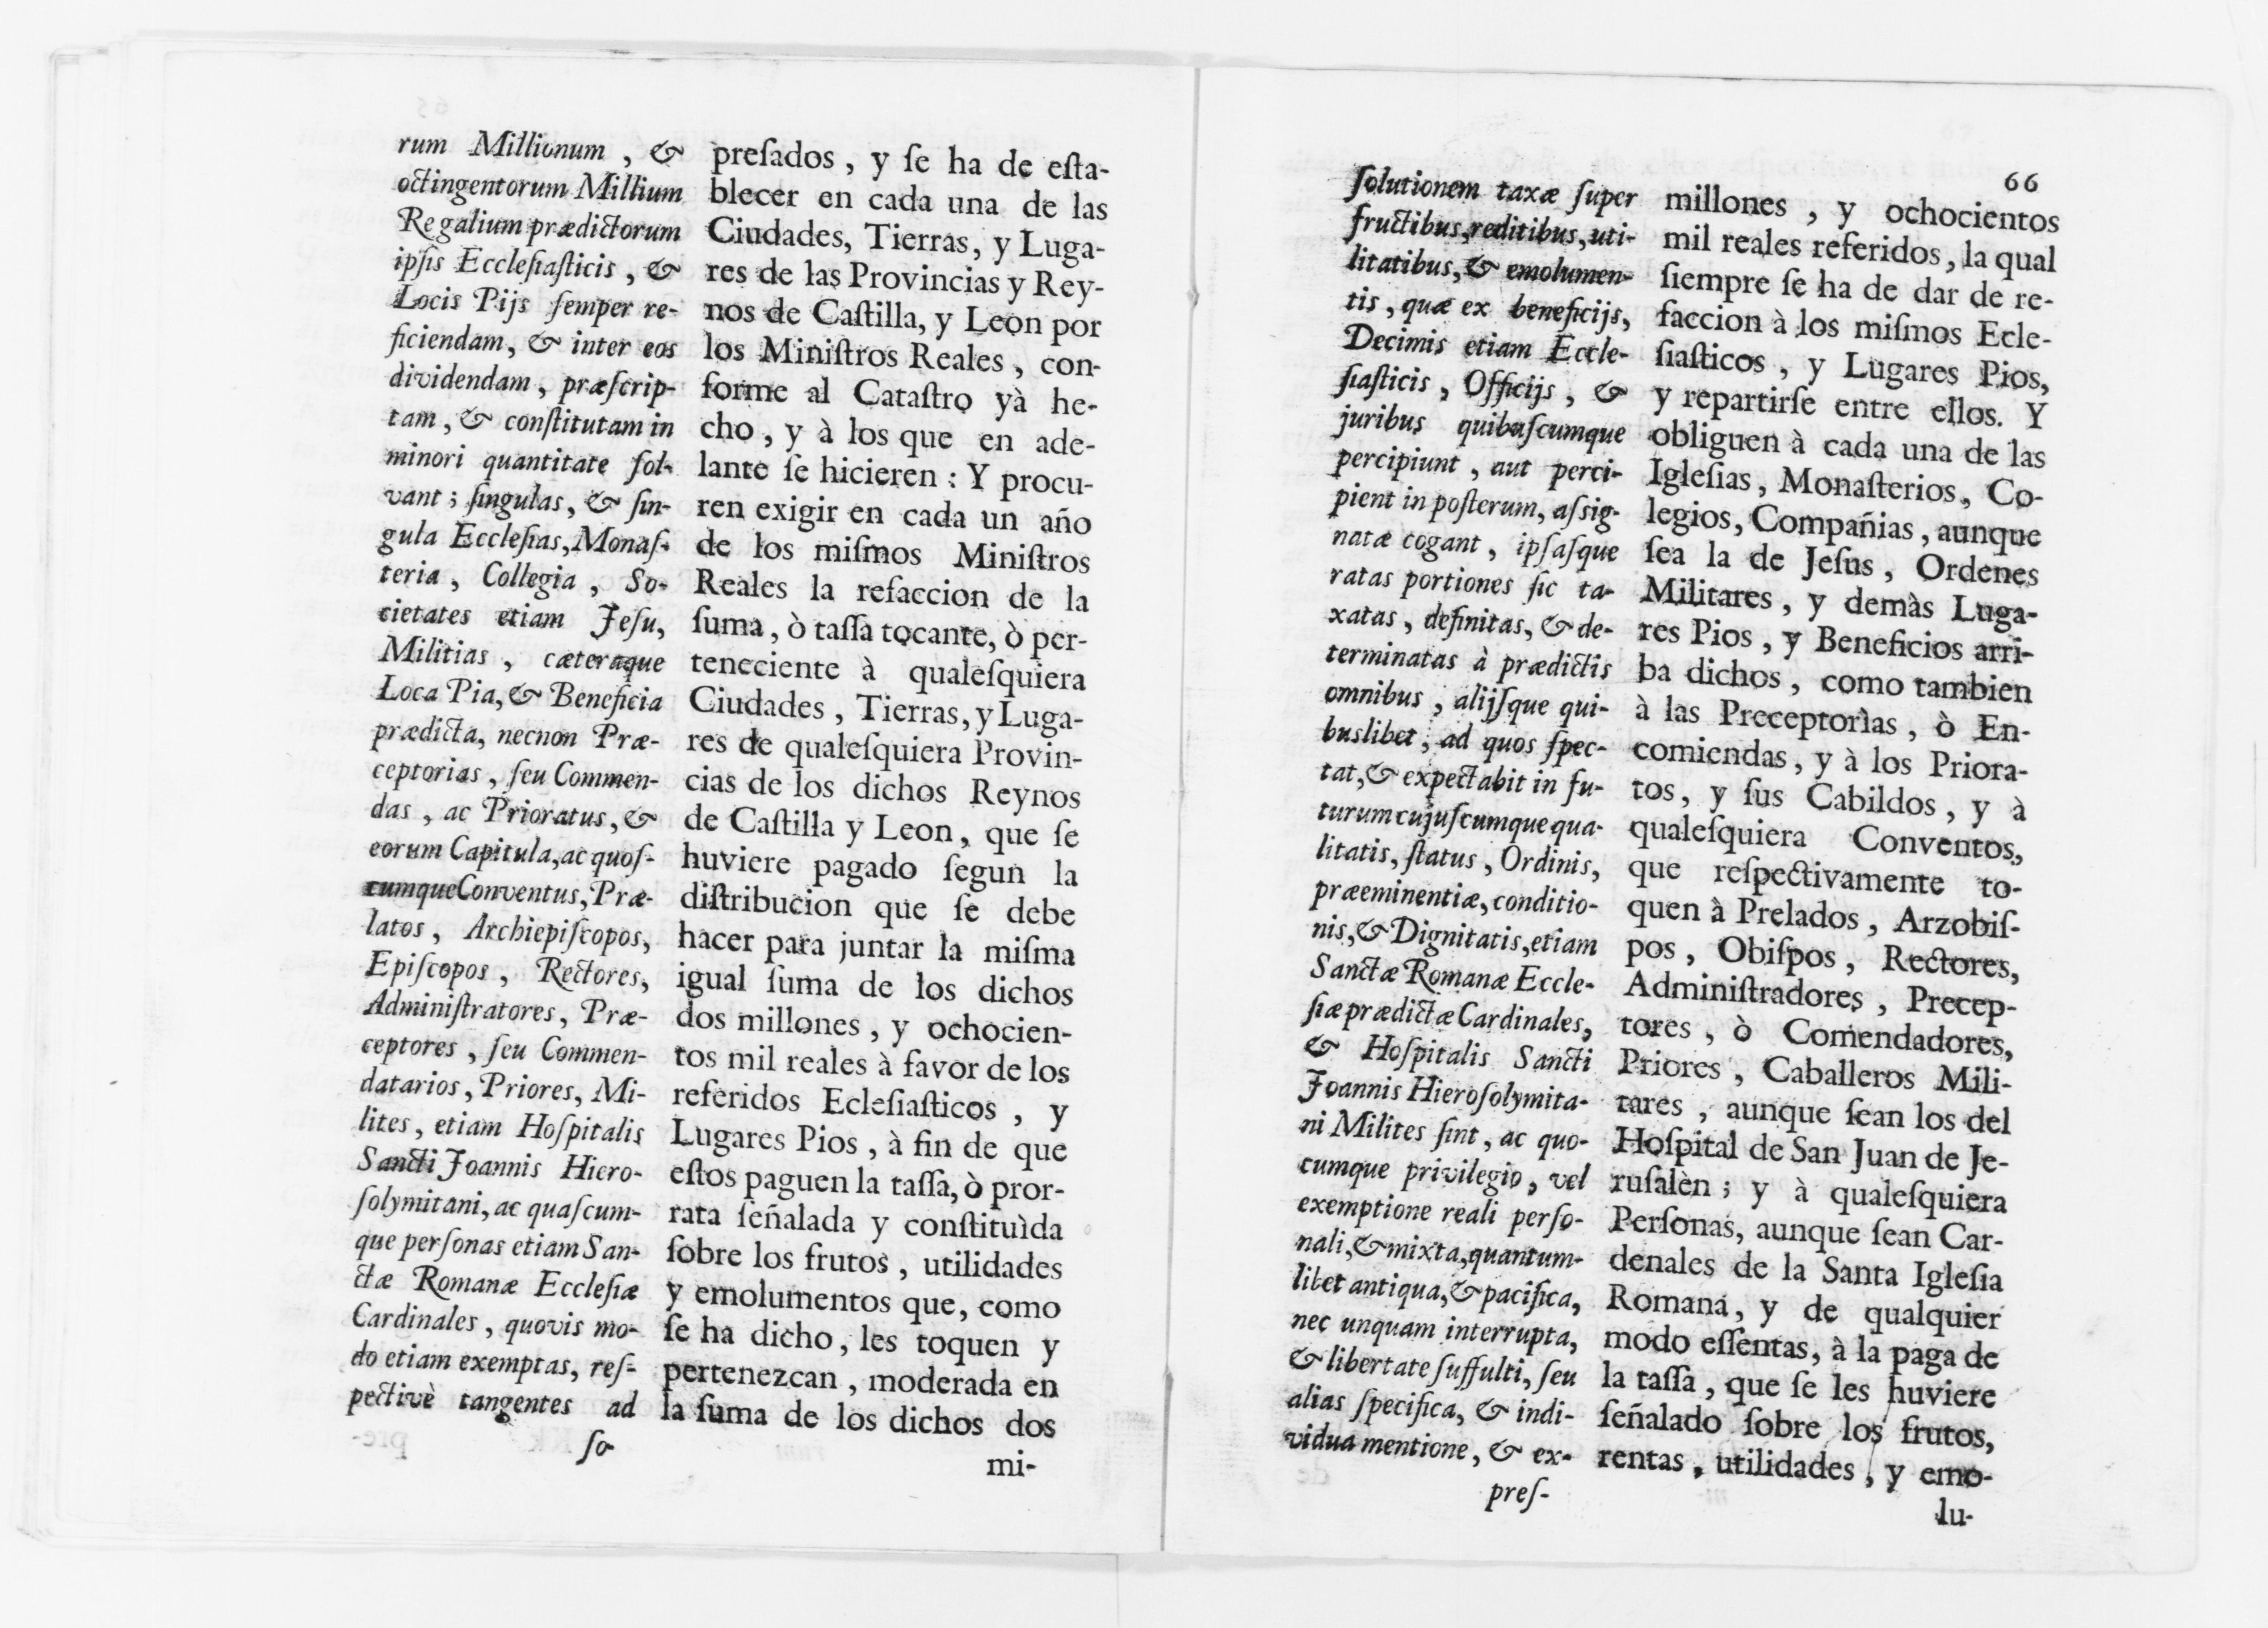 rum Millionum , &
octingentorum Millium
Regalium prædictorum
ipſis Eccleſiaſticis , &
Locis Pijs ſemper re-
ficiendam, & inter eos
dividendam, præſcrip-
tam, & conſtitutam in
minori quantitate ſol-
vant ; ſingulas, & ſin-
gula Eccleſias, Monaſ-
teria , Collegia , So-
cietates etiam Jeſu,
Militias , cæteraque
Loca Pia, & Beneficia
prædicta, necnon Præ-
ceptorias , ſeu Commen-
das , ac Prioratus, &
eorum Capitula, ac quoſ-
cumque Conventus, Præ-
latos , Archiepiſcopos,
Epiſcopos , Rectores,
Adminiſtratores, Præ-
ceptores , ſeu Commen-
datarios, Priores, Mi-
lites, etiam Hoſpitalis
Sancti Joannis Hiero-
ſolymitani, ac quaſcum-
que perſonas etiam San-
ctæ Romanæ Eccleſiæ
Cardinales , quovis mo-
do etiam exemptas, reſ-
pectivè tangentes ad
ſo-
preſados , y ſe ha de eſta-
blecer en cada una de las
Ciudades, Tierras, y Luga-
res de las Provincias y Rey-
nos de Caſtilla, y Leon por
los Miniſtros Reales , con-
forme al Cataſtro yà he-
cho , y à los que en ade-
lante ſe hicieren : Y procu-
ren exigir en cada un año
de los miſmos Miniſtros
Reales la refaccion de la
ſuma, ò taſſa tocante, ò per-
teneciente à qualeſquiera
Ciudades , Tierras, y Luga-
res de qualeſquiera Provin-
cias de los dichos Reynos
de Caſtilla y Leon, que ſe
huviere pagado ſegun la
diſtribucion que ſe debe
hacer para juntar la miſma
igual ſuma de los dichos
dos millones , y ochocien-
tos mil reales à favor de los
referidos Ecleſiaſticos , y
Lugares Pios , à fin de que
eſtos paguen la taſſa, ò pror-
rata ſeñalada y conſtituìda
ſobre los frutos , utilidades
y emolumentos que, como
ſe ha dicho, les toquen y
pertenezcan , moderada en
la ſuma de los dichos dos
mi-
66
ſolutionem taxæ ſuper
fructibus, reditibus, uti-
litatibus, & emolumen-
tis , quæ ex beneficijs,
Decimis etiam Eccle-
ſiaſticis , Officijs , &
juribus quibuſcumque
percipiunt , aut perci-
pient in poſterum, aſsig-
natæ cogant , ipſaſque
ratas portiones ſic ta-
xatas , definitas, & de-
terminatas à prædictis
omnibus , alijſque qui-
buslibet, ad quos ſpec-
tat, & expectabit in fu-
turum cujuſcumque qua-
litatis, ſtatus , Ordinis,
præeminentiæ, conditio-
nis, & Dignitatis, etiam
Sanctæ Romanæ Eccle-
ſiæ prædictæ Cardinales,
& Hoſpitalis Sancti
Joannis Hieroſolymita-
ni Milites ſint, ac quo-
cumque privilegio, vel
exemptione reali perſo-
nali, & mixta, quantum-
libet antiqua, & pacifica,
nec unquam interrupta,
& libertate ſuffulti, ſeu
alias ſpecifica, & indi-
vidua mentione, & ex-
preſ-
millones , y ochocientos
mil reales referidos, la qual
ſiempre ſe ha de dar de re-
faccion à los miſmos Ecle-
ſiaſticos , y Lugares Pios,
y repartirſe entre ellos. Y
obliguen à cada una de las
Igleſias, Monaſterios, Co-
legios, Compañias , aunque
ſea la de Jeſus , Ordenes
Militares , y demàs Luga-
res Pios , y Beneficios arri-
ba dichos, como tambien
à las Preceptorìas , ò En-
comiendas, y à los Priora-
tos, y ſus Cabildos, y à
qualeſquiera Conventos,
que reſpectivamente to-
quen à Prelados, Arzobiſ-
pos , Obiſpos , Rectores,
Adminiſtradores , Precep-
tores , ò Comendadores,
Priores , Caballeros Mili-
tares , aunque ſean los del
Hoſpital de San Juan de Je-
ruſalèn ; y à qualeſquiera
Perſonas, aunque ſean Car-
denales de la Santa Igleſia
Romana, y de qualquier
modo eſſentas, à la paga de
la taſſa , que ſe les huviere
ſeñalado ſobre los frutos,
rentas , utilidades , y emo-
lu-